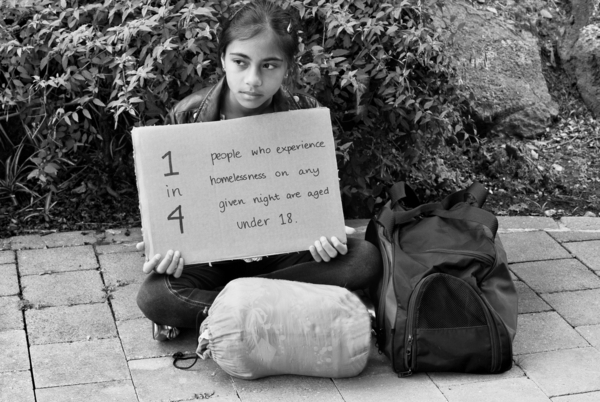 1
in
4
people who experience
homelessness on any
given night are aged
under 18.